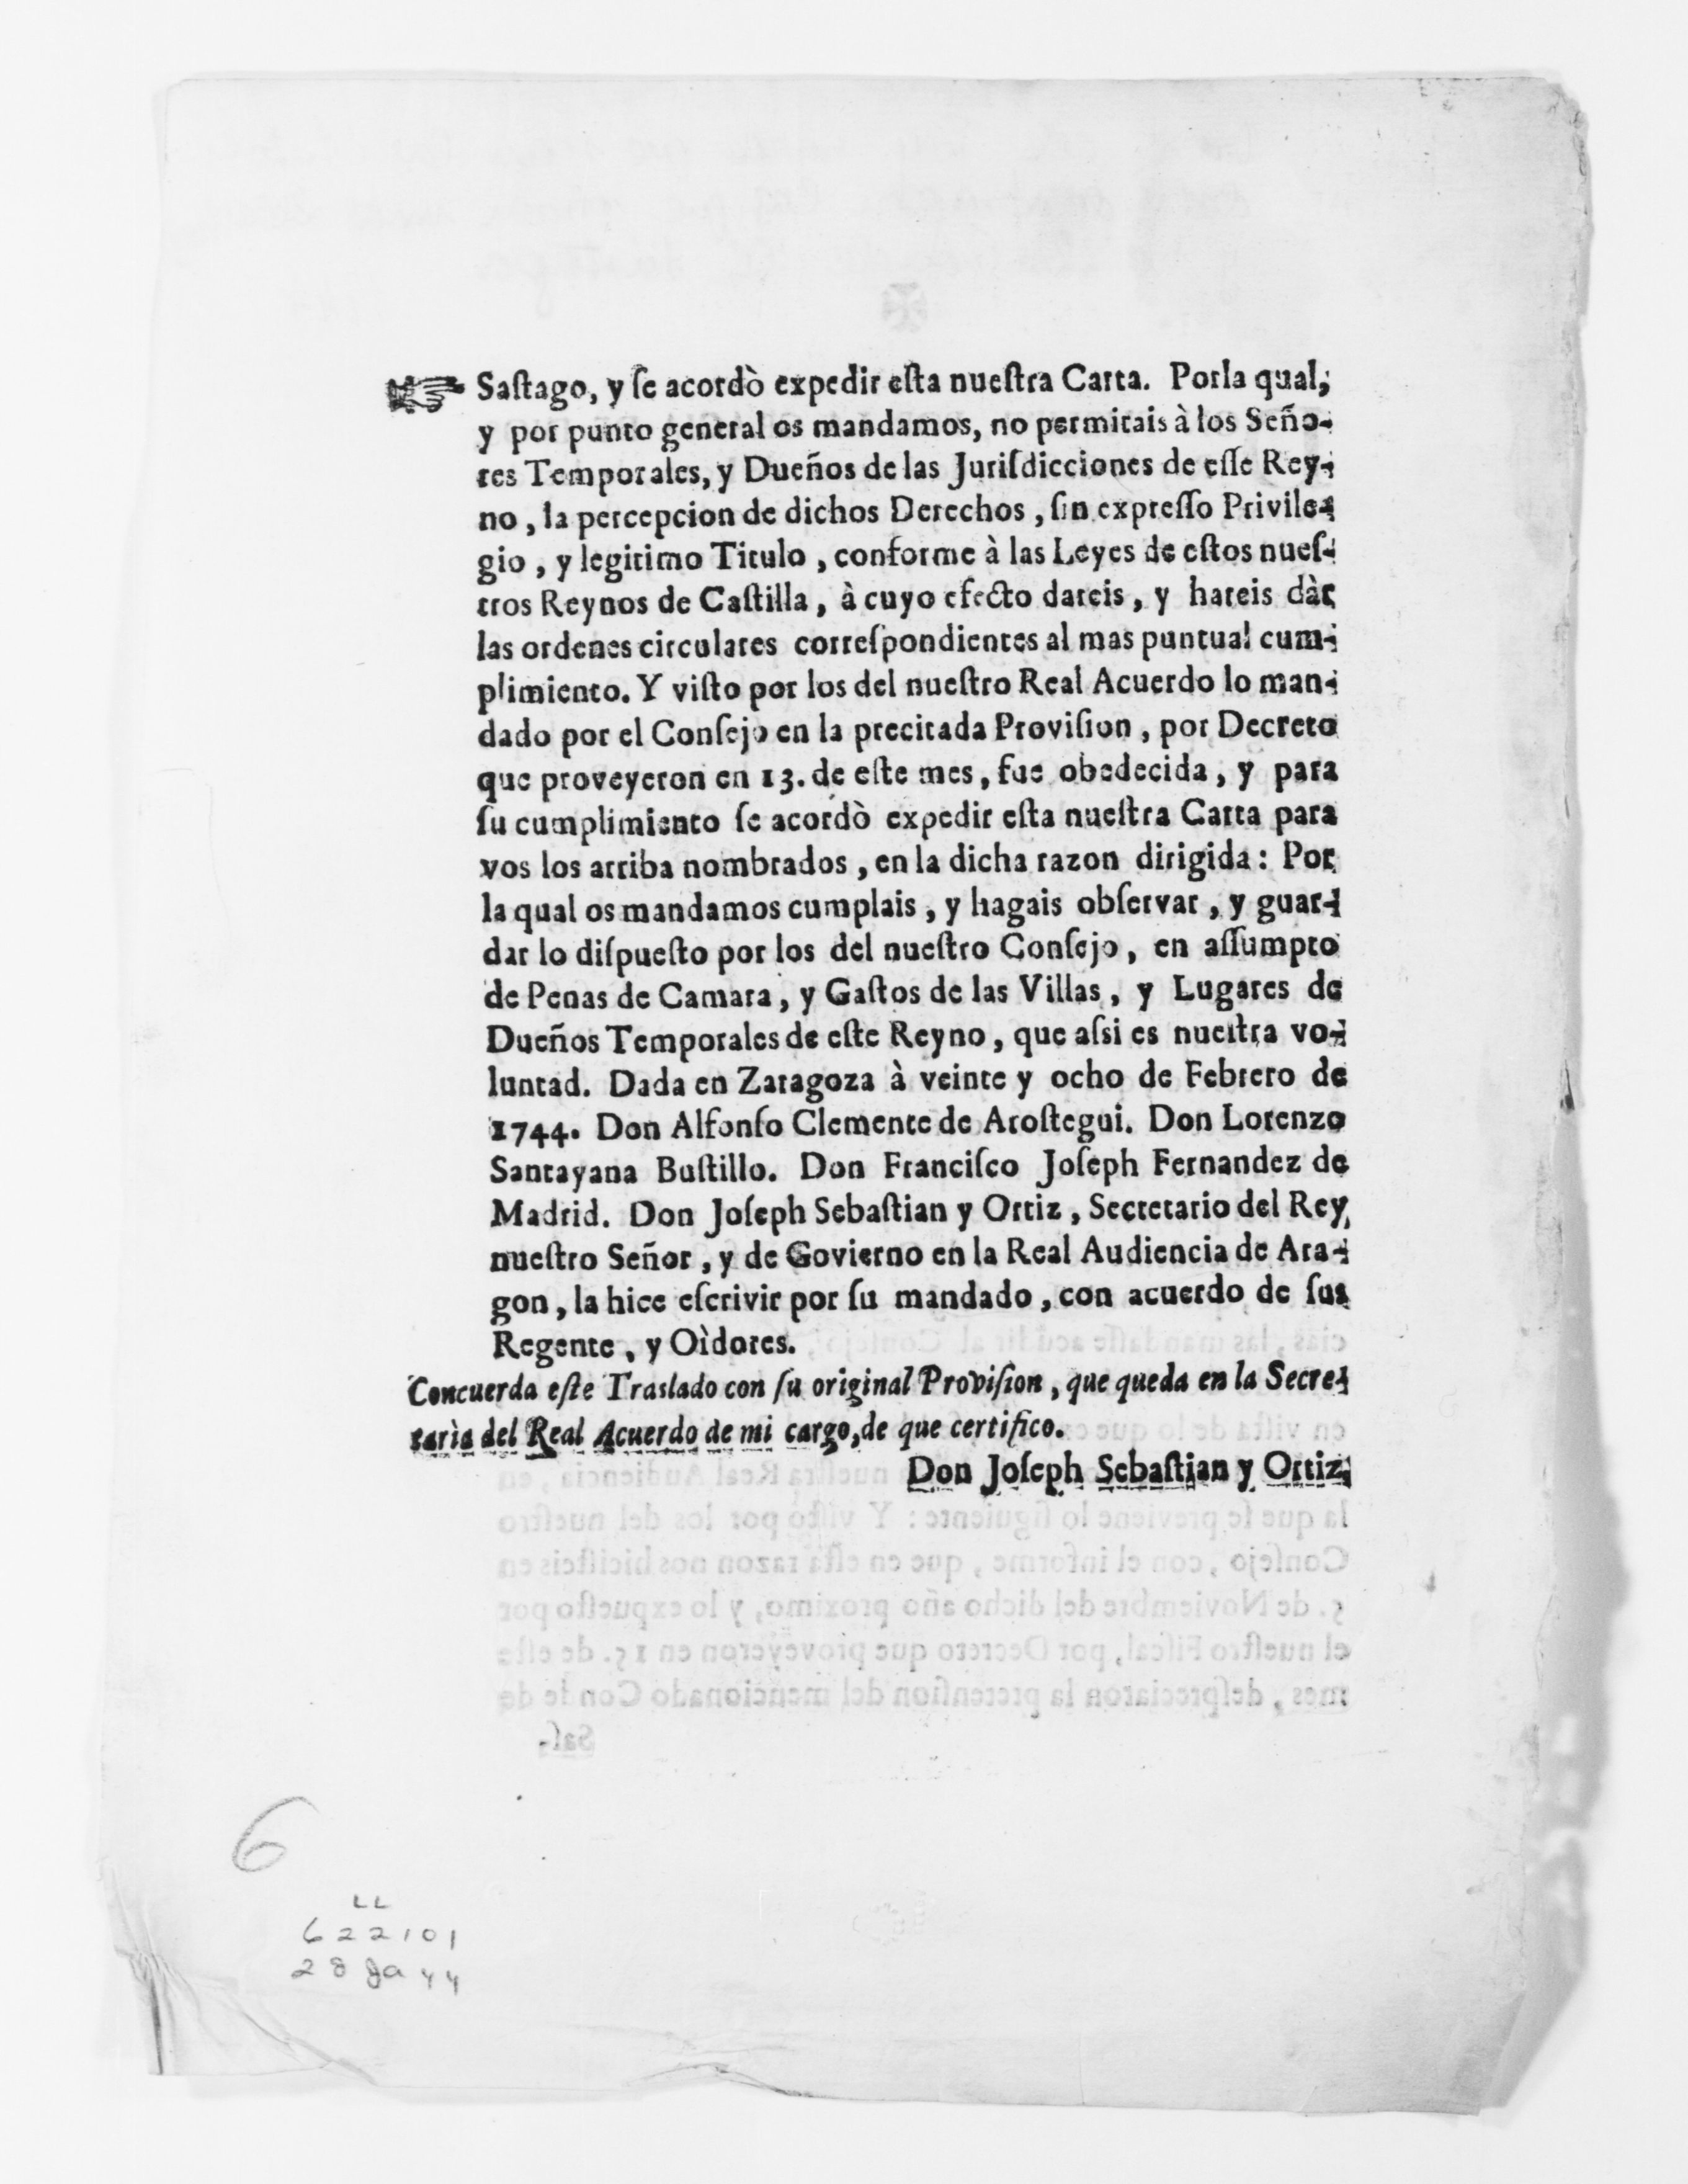 Saſtago, y ſe acordò expedir eſta nueſtra Carta. Por la qual,
y por punto general os mandamos, no permitais à los Seño-
res Temporales, y Dueños de las Juriſdicciones de eſſe Rey-
no, la percepcion de dichos Derechos, ſin expreſſo Privile-
gio, y legitimo Titulo, conforme à las Leyes de eſtos nueſ-
tros Reynos de Caſtilla, à cuyo efecto dareis, y hareis dàr
las ordenes circulares correſpondientes al mas puntual cum-
plimiento. Y viſto por los del nueſtro Real Acuerdo lo man-
dado por el Conſejo en la precitada Proviſion, por Decreto
que proveyeron en 13. de eſte mes, fue obedecida, y para
ſu cumplimiento ſe acordò expedir eſta nueſtra Carta para
vos los arriba nombrados, en la dicha razon dirigida: Por
la qual os mandamos cumplais, y hagais obſervar, y guar-
dar lo diſpueſto por los del nueſtro Conſejo, en aſſumpto
de Penas de Camara, y Gaſtos de las Villas, y Lugares de
Dueños Temporales de eſte Reyno, que aſsi es nueſtra vo-
luntad. Dada en Zaragoza à veinte y ocho de Febrero de
1744. Don Alfonſo Clemente de Aroſtegui. Don Lorenzo
Santayana Buſtillo. Don Franciſco Joſeph Fernandez de
Madrid. Don Joſeph Sebaſtian y Ortiz, Secretario del Rey
nueſtro Señor, y de Govierno en la Real Audiencia de Ara-
gon, la hice eſcrivir por ſu mandado, con acuerdo de ſus
Regente, y Oìdores.
Concuerda eſte Traslado con ſu original Proviſion, que queda en la Secre-
tarìa del Real Acuerdo de mi cargo, de que certifico.
Don Joſeph Sebaſtian y Ortiz.
la que ſe previene lo ſiguiente: Y viſto por los del nueſtro
Conſejo, con el informe, que en eſta razon nos hiciſteis en
5. de Noviembre del dicho año proximo, y lo expueſto por
el nueſtro Fiſcal, por Decreto que proveyeron en 15. de eſte
mes, deſpreciaron la pretenſion del mencionado Conde de
Saſ-
6
LL
622101
28 Ja 44